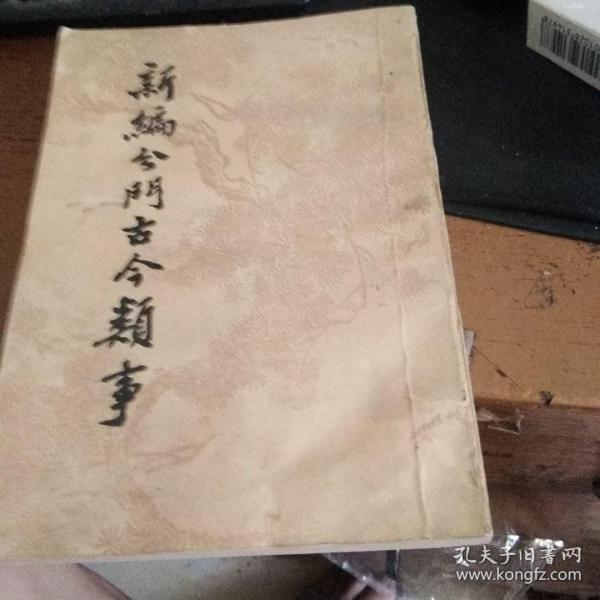 新編分門古今類事
孔夫子旧書网
www.kongfz.com